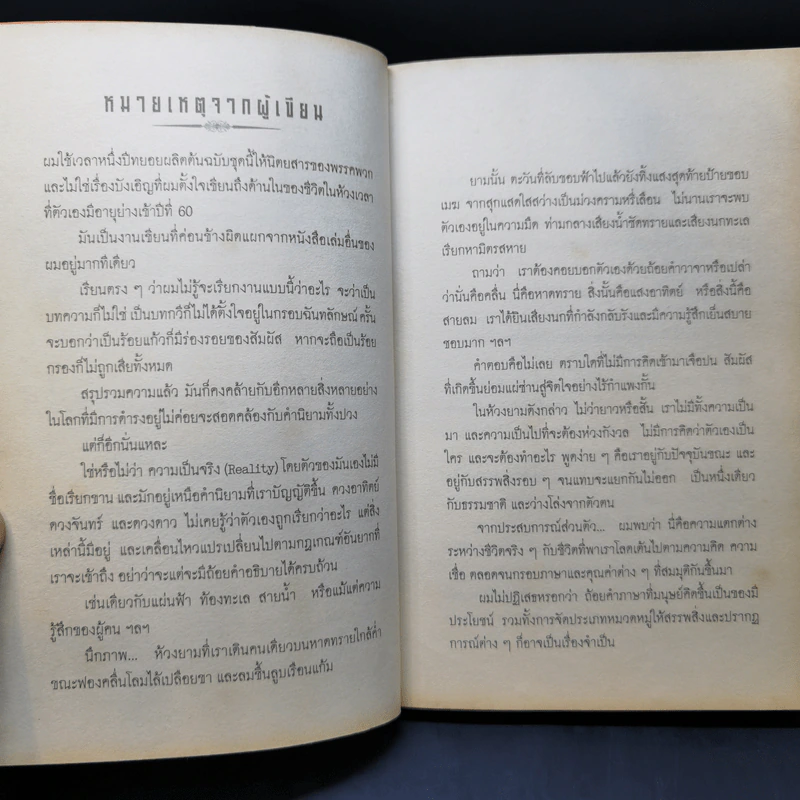 หมายเหตุจากผู้เขียน
ผมใช้เวลาหนึ่งปีทยอยผลิตต้นฉบับชุดนี้ให้นิตยสารของพรรคพวก
และไม่ใช่เรื่องบังเอิญที่ผมตั้งใจเขียนถึงด้านในของชีวิตในห้วงเวลา
ที่ตัวเองมีอายุย่างเข้าปีที่ 60
มันเป็นงานเขียนที่ค่อนข้างผิดแผกจากหนังสือเล่มอื่นของ
ผมอยู่มากทีเดียว
เรียนตรง ๆ ว่าผมไม่รู้จะเรียกงานแบบนี้ว่าอะไร จะว่าเป็น
บทความก็ไม่ใช่ เป็นบทกวีก็ไม่ได้ตั้งใจอยู่ในกรอบฉันทลักษณ์ ครั้น
จะบอกว่าเป็นร้อยแก้วก็มีร่องรอยของสัมผัส หากจะถือเป็นร้อย
กรองก็ไม่ถูกเสียทั้งหมด
สรุปรวมความแล้ว มันก็คงคล้ายกับอีกหลายสิ่งหลายอย่าง
ในโลกที่มีการดำรงอยู่ไม่ค่อยจะสอดคล้องกับคำนิยามทั้งปวง
แต่ก็อีกนั่นแหละ
ใช่หรือไม่ว่า ความเป็นจริง (Reality) โดยตัวของมันเองไม่มี
ชื่อเรียกขาน และมักอยู่เหนือคำนิยามที่เราบัญญัติขึ้น ดวงอาทิตย์
ดวงจันทร์ และดวงดาว ไม่เคยรู้ว่าตัวเองถูกเรียกว่าอะไร แต่สิ่ง
เหล่านี้มีอยู่ และเคลื่อนไหวแปรเปลี่ยนไปตามกฎเกณฑ์อันยากที่
เราจะเข้าถึง อย่าว่าจะแต่จะมีถ้อยคำอธิบายได้ครบถ้วน
เช่นเดียวกับแผ่นฟ้า ท้องทะเล สายน้ำ หรือแม้แต่ความ
รู้สึกของผู้คน ฯลฯ
นึกภาพ... ห้วงยามที่เราเดินคนเดียวบนหาดทรายใกล้ค่ำ
ขณะฟองคลื่นโลมไล้เปลือยขา และลมชื้นลูบเรือนแก้ม
ยามนั้น ตะวันที่ลับขอบฟ้าไปแล้วยังทิ้งแสงสุดท้ายป้ายขอบ
เมฆ จากสุกแสดใสสว่างเป็นม่วงครามหรี่เลือน ไม่นานเราจะพบ
ตัวเองอยู่ในความมืด ท่ามกลางเสียงน้ำซัดทรายและเสียงนกทะเล
เรียกหามิตรสหาย
ถามว่า เราต้องคอยบอกตัวเองด้วยถ้อยคำวาจาหรือเปล่า
ว่านั่นคือคลื่น นี่คือหาดทราย สิ่งนั้นคือแสงอาทิตย์ หรือสิ่งนี้คือ
สายลม เราได้ยินเสียงนกที่กำลังกลับรังและมีความรู้สึกเย็นสบาย
ชอบมาก ฯลฯ
คำตอบคือไม่เลย ตราบใดที่ไม่มีการคิดเข้ามาเจือปน สัมผัส
ที่เกิดขึ้นย่อมแผ่ซ่านสู่จิตใจอย่างไร้กำแพงกั้น
ในห้วงยามดังกล่าว ไม่ว่ายาวหรือสั้น เราไม่มีทั้งความเป็น
มา และความเป็นไปที่จะต้องห่วงกังวล ไม่มีการคิดว่าตัวเองเป็น
ใคร และจะต้องทำอะไร พูดง่าย ๆ คือเราอยู่กับปัจจุบันขณะ และ
อยู่กับสรรพสิ่งรอบ ๆ จนแทบจะแยกกันไม่ออก เป็นหนึ่งเดียว
กับธรรมชาติ และว่างโล่งจากตัวตน
จากประสบการณ์ส่วนตัว... ผมพบว่า นี่คือความแตกต่าง
ระหว่างชีวิตจริง ๆ กับชีวิตที่พาเราโลดเต้นไปตามความคิด ความ
เชื่อ ตลอดจนกรอบภาษาและคุณค่าต่าง ๆ ที่สมมุติกันขึ้นมา
ผมไม่ปฏิเสธหรอกว่า ถ้อยคำภาษาที่มนุษย์คิดขึ้นเป็นของมี
ประโยชน์ รวมทั้งการจัดประเภทหมวดหมู่ให้สรรพสิ่งและปรากฏ
การณ์ต่าง ๆ ก็อาจเป็นเรื่องจำเป็น